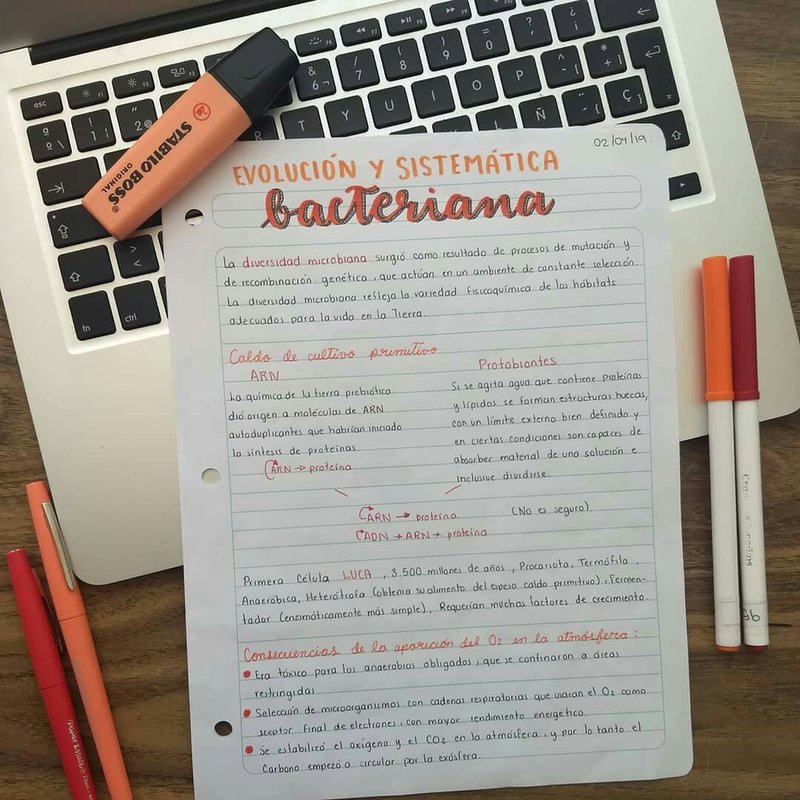 STABILO BOSS
ORIGINAL
02/04/19.
EVOLUCIÓN Y SISTEMÁTICA
bacteriana
La diversidad microbiana surgió como resultado de procesos de mutación y
de recombinación genética, que actúan en un ambiente de constante selección.
La diversidad microbiana refleja la variedad fisicoquímica de los hábitats
adecuados para la vida en la Tierra.
Caldo de cultivo primitivo
ARN
La química de la tierra prebiótica
dió origen a moléculas de ARN
autoduplicantes que habrían iniciado
la síntesis de proteínas.
ARN → proteína
Protobiontes
Si se agita agua que contiene proteínas
y lípidos se forman estructuras huecas,
con un límite externo bien definido y
en ciertas condiciones son capaces de
absorber material de una solución e
inclusive dividirse.
ARN → proteína. (No es seguro)
ADN → ARN → proteína
Primera Célula LUCA, 3.500 millones de años, Procariota, Termófila,
Anaeróbica, Heterótrofa (obtenía su alimento del espeso caldo primitivo), Fermen-
tador (enzimáticamente más simple), Requerían muchos factores de crecimiento.
Consecuencias de la aparición del O2 en la atmósfera:
Era tóxico para los anaerobios obligados, que se confinaron a áreas
restringidas
Selección de microorganismos con cadenas respiratorias que usaran el O2 como
aceptor final de electrones, con mayor rendimiento energético.
Se estabilizó el oxígeno y el CO2 en la atmósfera, y por lo tanto el
Carbono empezó a circular por la exósfera.
esc
fn
ctrl
Q
T
Y
U
I
O
P
L
Ñ
Ç
95